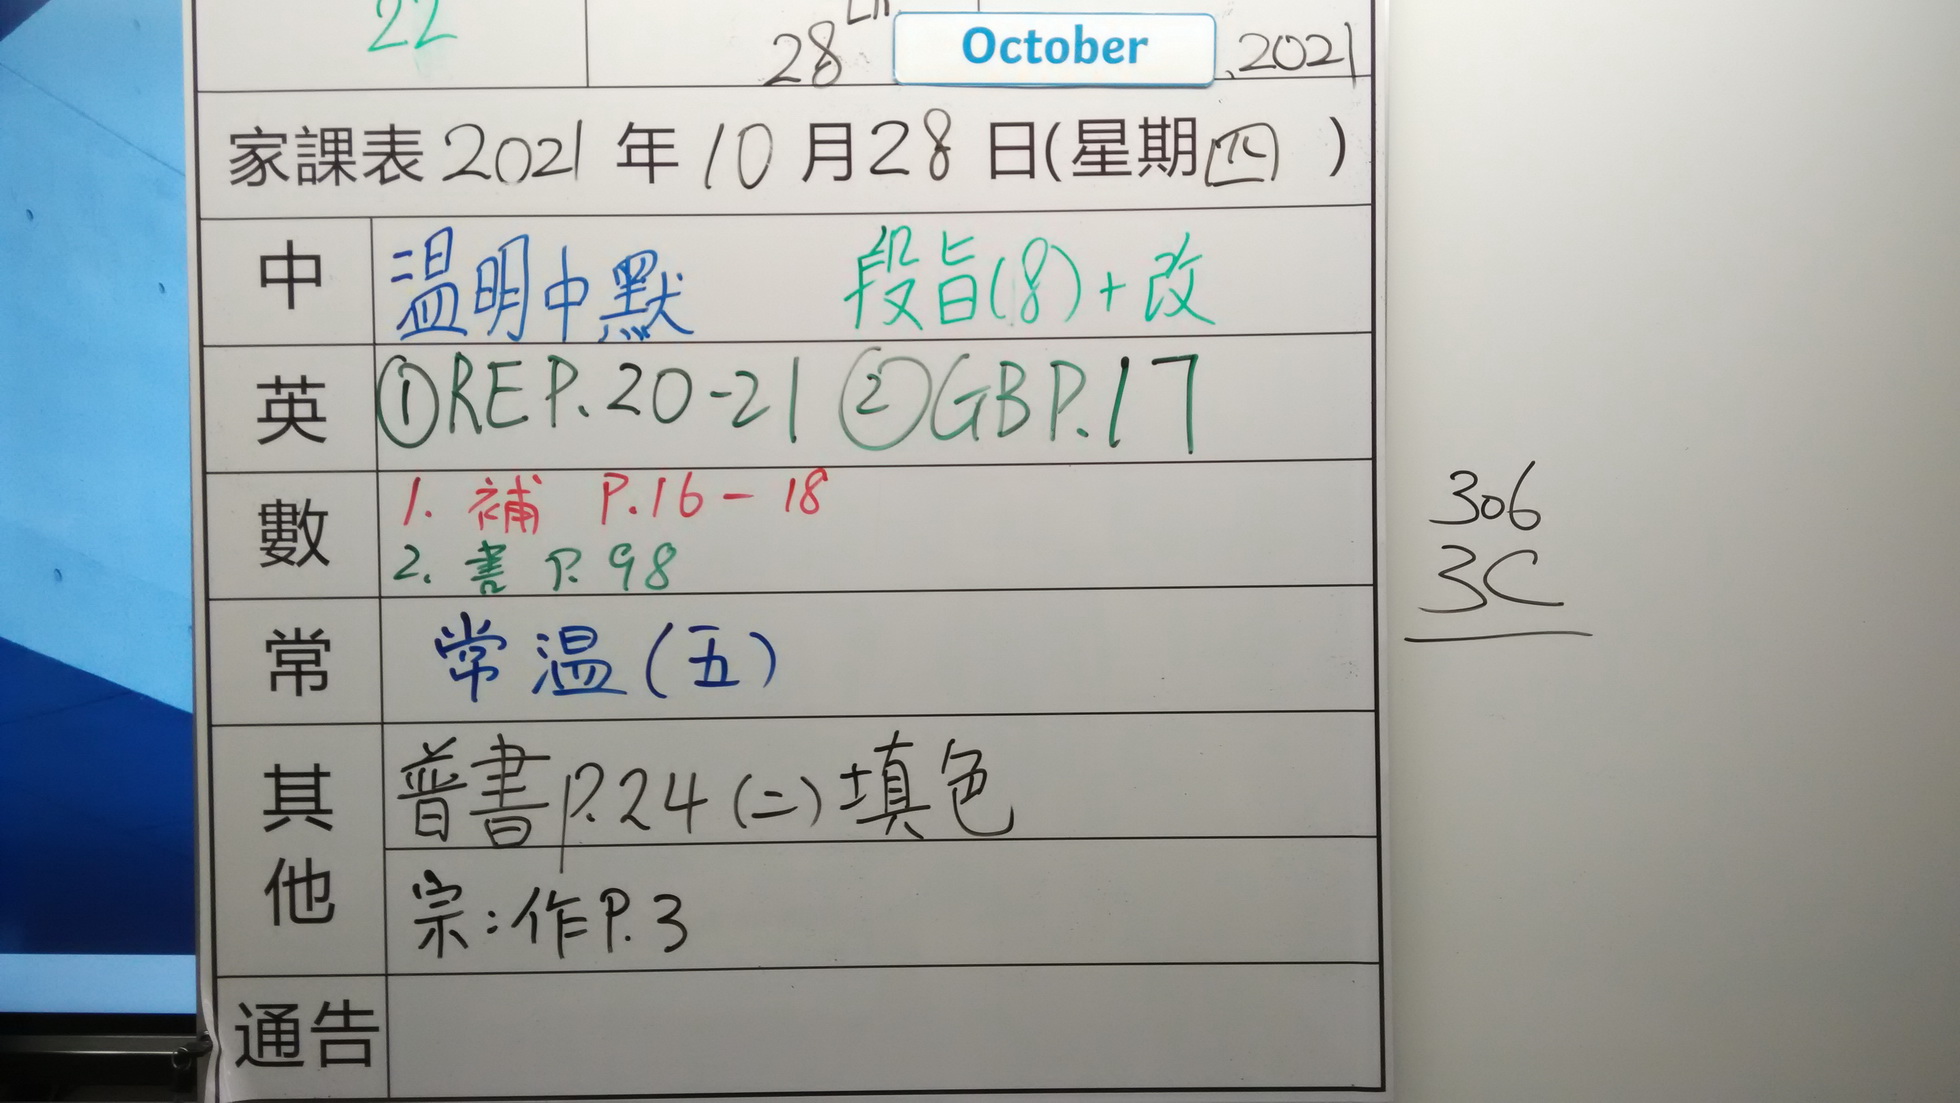 22
28th October, 2021
家課表 2021 年 10 月 28 日(星期四)
中 温明中默 段旨(8)+改
英 ①REP.20-21 ②GBP.17
數 1. 補 P.16-18
2. 書 P.98
常 常温(五)
其他 普書P.24(二)填色
宗:作P.3
通告
306
3C